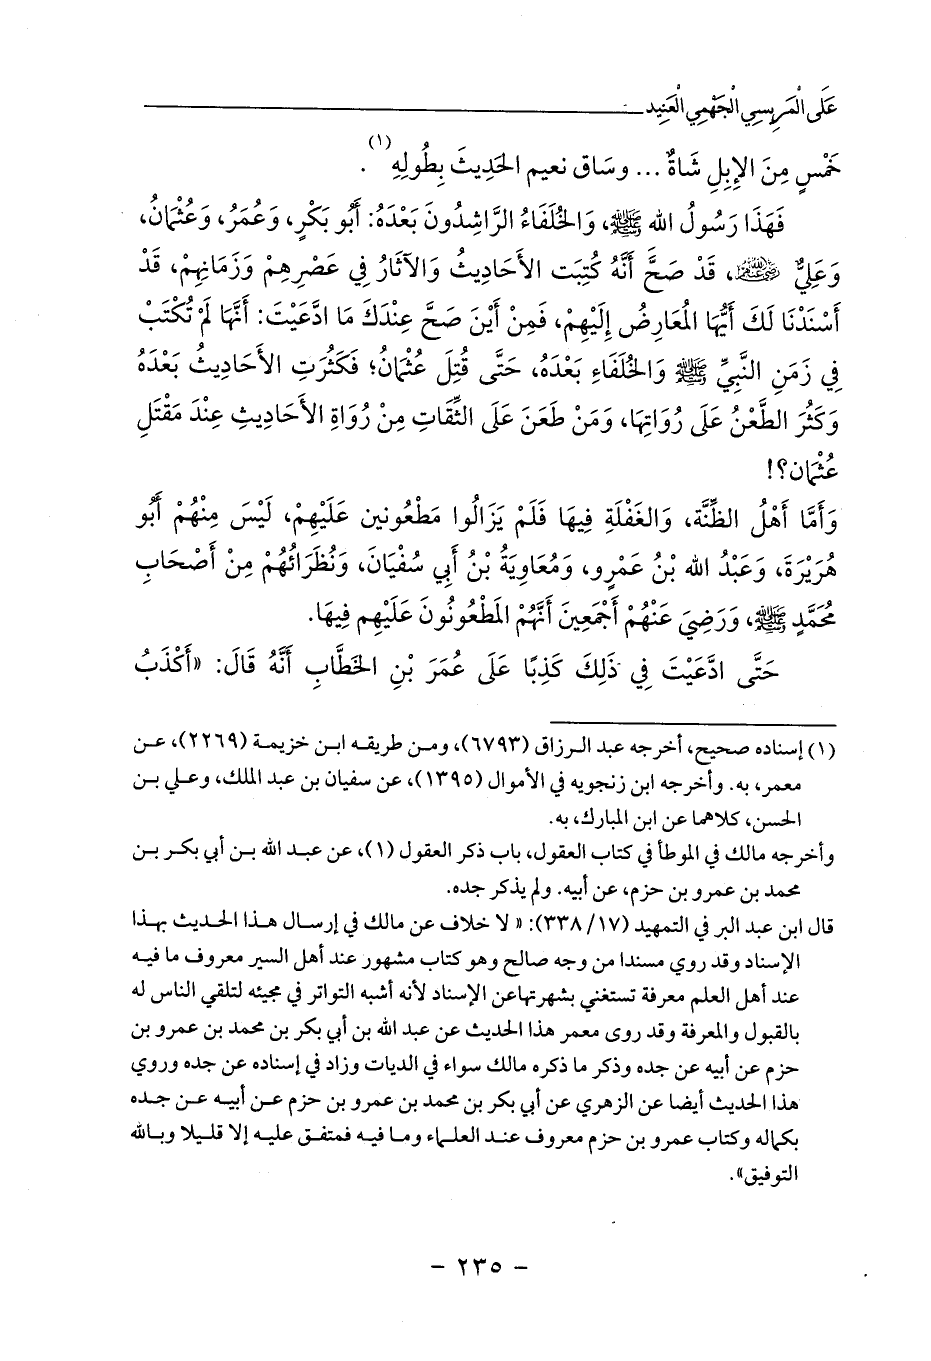 عَلَى الْمَرِيسِي الْجَهْمِي الْعَنِيد
خَمْسٍ مِنَ الإِبِلِ شَاةٌ ... وسَاق نعيم الحَدِيثَ بِطُولِهِ(١).
فَهَذَا رَسُولُ الله ﷺ، وَالخُلَفَاءُ الرَّاشِدُونَ بَعْدَهُ: أَبُو بَكْرٍ، وَعُمَرُ، وَعُثْمَانُ،
وَعَلِيٌّ ﵃، قَدْ صَحَّ أَنَّهُ كُتِبَت الأَحَادِيثُ وَالآثَارُ فِي عَصْرِهِمْ وَزَمَانِهِمْ، قَدْ
أَسْنَدْنَا لَكَ أَيُّهَا المُعَارِضُ إِلَيْهِمْ، فَمِنْ أَيْنَ صَحَّ عِنْدَكَ مَا ادَّعَيْتَ: أَنَّهَا لَمْ تُكْتَبْ
فِي زَمَنِ النَّبِيِّ ﷺ وَالخُلَفَاءِ بَعْدَهُ، حَتَّى قُتِلَ عُثْمَانُ؛ فَكَثُرَتِ الأَحَادِيثُ بَعْدَهُ
وَكَثُرَ الطَّعْنُ عَلَى رُوَاتِهَا، وَمَنْ طَعَنَ عَلَى الثِّقَاتِ مِنْ رُوَاةِ الأَحَادِيثِ عِنْدَ مَقْتَلِ
عُثْمَان؟!
وَأَمَّا أَهْلُ الظِّنَّة، وَالغَفْلَةِ فِيهَا فَلَمْ يَزَالُوا مَطْعُونين عَلَيْهِمْ، لَيْسَ مِنْهُمْ أَبُو
هُرَيْرَةَ، وَعَبْدُ الله بْنُ عَمْرٍو، وَمُعَاوِيَةُ بْنُ أَبِي سُفْيَانَ، وَنُظَرَائُهُمْ مِنْ أَصْحَابِ
مُحَمَّدٍ ﷺ، وَرَضِيَ عَنْهُمْ أَجْمَعِينَ أَنَّهُمْ المَطْعُونُونَ عَلَيْهِم فِيهَا.
حَتَّى ادَّعَيْتَ فِي ذَلِكَ كَذِبًا عَلَى عُمَرَ بْنِ الخَطَّابِ أَنَّهُ قَالَ: «أَكْذَبُ
(١) إسناده صحيح، أخرجه عبد الرزاق (٦٧٩٣)، ومن طريقه ابن خزيمة (٢٢٦٩)، عن
معمر، به. وأخرجه ابن زنجويه في الأموال (١٣٩٥)، عن سفيان بن عبد الملك، وعلي بن
الحسن، كلاهما عن ابن المبارك، به.
وأخرجه مالك في الموطأ في كتاب العقول، باب ذكر العقول (١)، عن عبد الله بن أبي بكر بن
محمد بن عمرو بن حزم، عن أبيه. ولم يذكر جده.
قال ابن عبد البر في التمهيد (٣٣٨/١٧): «لا خلاف عن مالك في إرسال هذا الحديث بهذا
الإسناد وقد روي مسندا من وجه صالح وهو كتاب مشهور عند أهل السير معروف ما فيه
عند أهل العلم معرفة تستغني بشهرتها عن الإسناد لأنه أشبه التواتر في مجيئه لتلقي الناس له
بالقبول والمعرفة وقد روى معمر هذا الحديث عن عبد الله بن أبي بكر بن محمد بن عمرو بن
حزم عن أبيه عن جده وذكر ما ذكره مالك سواء في الديات وزاد في إسناده عن جده وروي
هذا الحديث أيضا عن الزهري عن أبي بكر بن محمد بن عمرو بن حزم عن أبيه عن جده
بكماله وكتاب عمرو بن حزم معروف عند العلماء وما فيه فمتفق عليه إلا قليلا وبالله
التوفيق».
- ٢٣٥ -